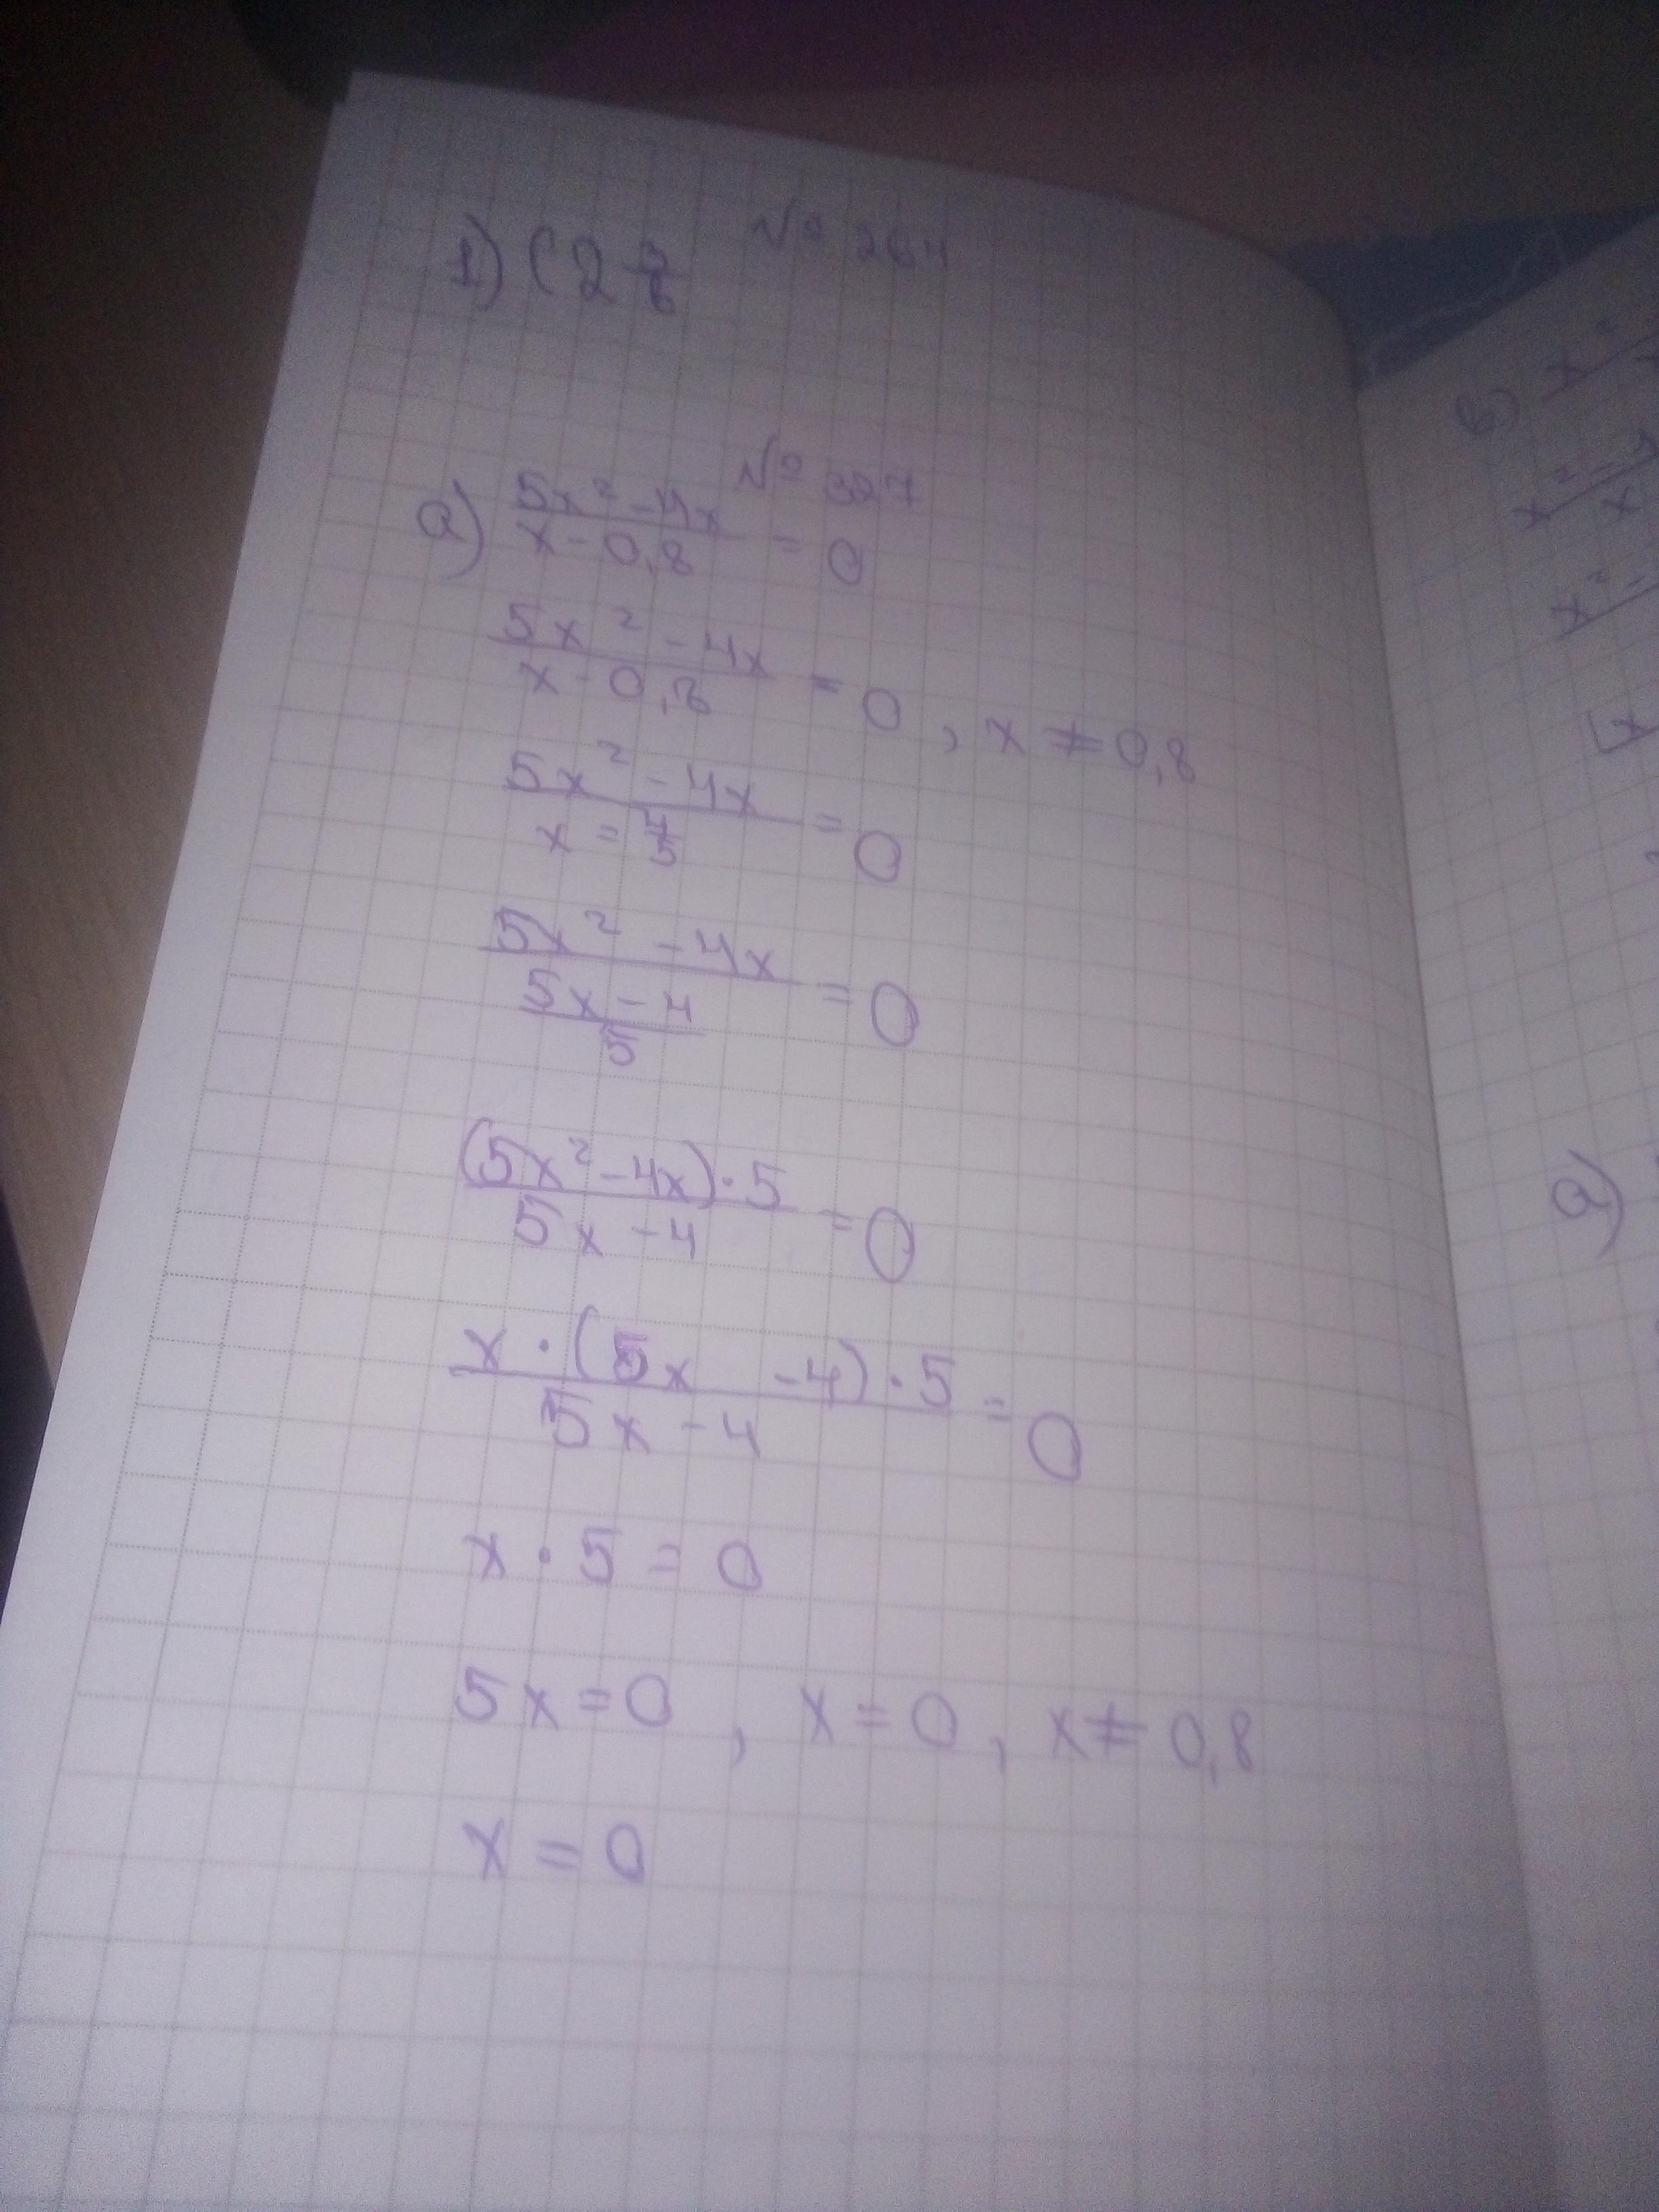 № 264
1) (2 3/6
№ 327
а) (5x² - 4x)/(x - 0,8) = 0
(5x² - 4x)/(x - 0,8) = 0, x ≠ 0,8
(5x² - 4x)/(x = 4/5) = 0
(5x² - 4x)/((5x - 4)/5) = 0
((5x² - 4x) · 5)/(5x - 4) = 0
(x · (5x - 4) · 5)/(5x - 4) = 0
x · 5 = 0
5x = 0, x = 0, x ≠ 0,8
x = 0
в) x²
x² - 1
x
x² -
x
а)